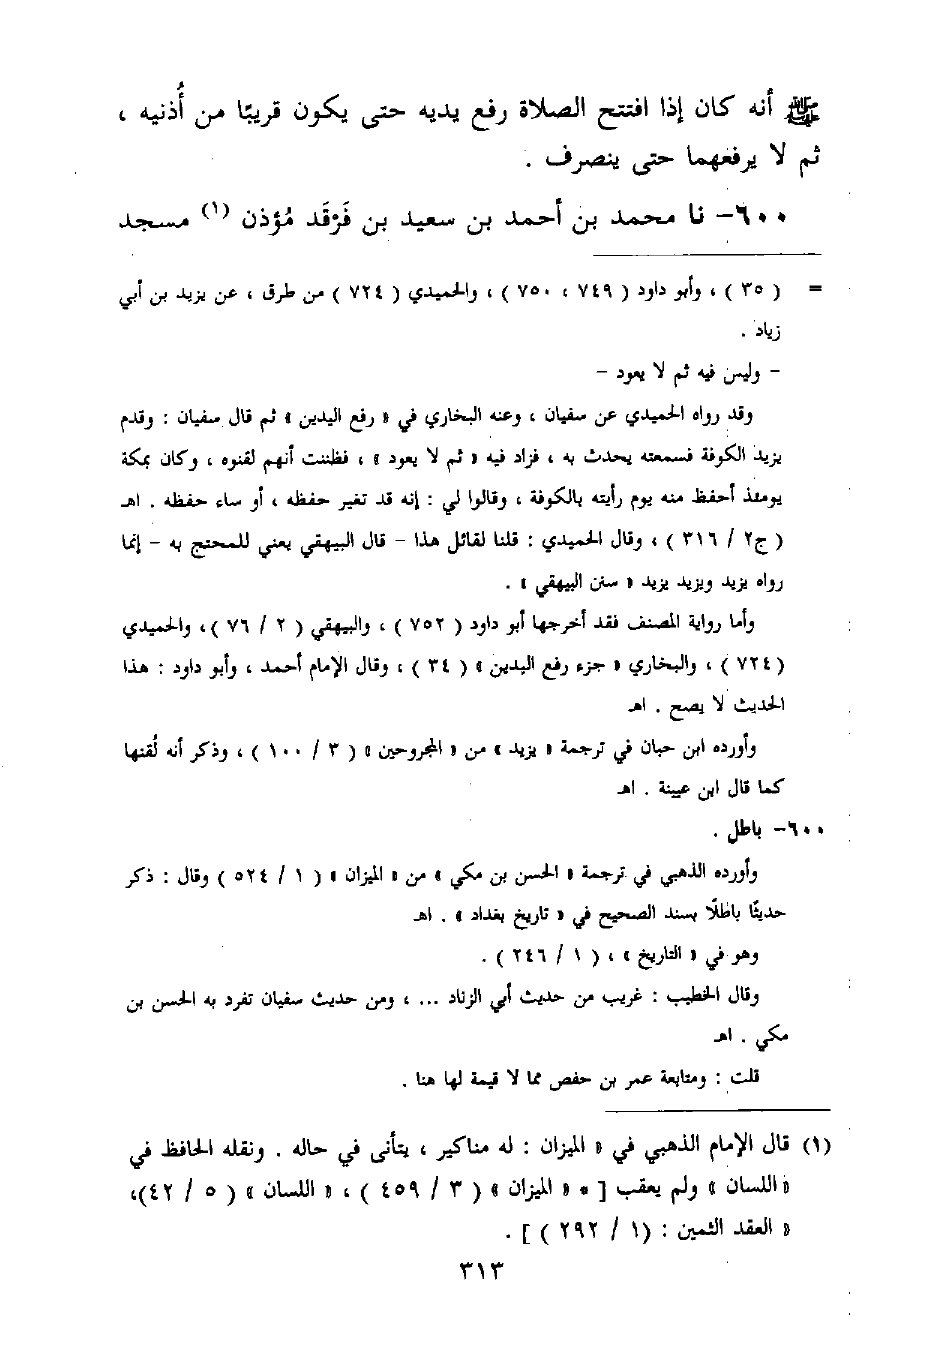 ﷺ أنه كان إذا افتتح الصلاة رفع يديه حتى يكون قريبًا من أُذنيه ،
ثم لا يرفعهما حتى ينصرف .
٦٠٠- نا محمد بن أحمد بن سعيد بن فَرْقَد مُؤذن (١) مسجد
= ( ٣٥ ) ، وأبو داود ( ٧٤٩ ، ٧٥٠ ) ، والحميدي ( ٧٢٤ ) من طرق ، عن يزيد بن أبي
زياد .
- وليس فيه ثم لا يعود -
وقد رواه الحميدي عن سفيان ، وعنه البخاري في « رفع اليدين » ثم قال سفيان : وقدم
يزيد الكوفة فسمعته يحدث به ، فزاد فيه « ثم لا يعود » ، فظننت أنهم لقنوه ، وكان بمكة
يومئذ أحفظ منه يوم رأيته بالكوفة ، وقالوا لي : إنه قد تغير حفظه ، أو ساء حفظه . اهـ
( ج٢ / ٣١٦ ) ، وقال الحميدي : قلنا لقائل هذا - قال البيهقي يعني للمحتج به - إنما
رواه يزيد ويزيد يزيد « سنن البيهقي » .
وأما رواية المصنف فقد أخرجها أبو داود ( ٧٥٢ ) ، والبيهقي ( ٢ / ٧٦ ) ، والحميدي
( ٧٢٤ ) ، والبخاري « جزء رفع اليدين » ( ٣٤ ) ، وقال الإمام أحمد ، وأبو داود : هذا
الحديث لا يصح . اهـ
وأورده ابن حبان في ترجمة « يزيد » من « المجروحين » ( ٣ / ١٠٠ ) ، وذكر أنه لُقنها
كما قال ابن عيينة . اهـ
٦٠٠- باطل .
وأورده الذهبي في ترجمة « الحسن بن مكي » من « الميزان » ( ١ / ٥٢٤ ) وقال : ذكر
حديثًا باطلًا بسند الصحيح في « تاريخ بغداد » . اهـ
وهو في « التاريخ » ، ( ١ / ٢٤٦ ) .
وقال الخطيب : غريب من حديث أبي الزناد ... ، ومن حديث سفيان تفرد به الحسن بن
مكي . اهـ
قلت : ومتابعة عمر بن حفص مما لا قيمة لها هنا .
(١) قال الإمام الذهبي في « الميزان : له مناكير ، يتأنى في حاله . ونقله الحافظ في
« اللسان » ولم يعقب [ * « الميزان » ( ٣ / ٤٥٩ ) ، « اللسان » ( ٥ / ٤٢)،
« العقد الثمين : (١ / ٢٩٢ ) ] .
٣١٣